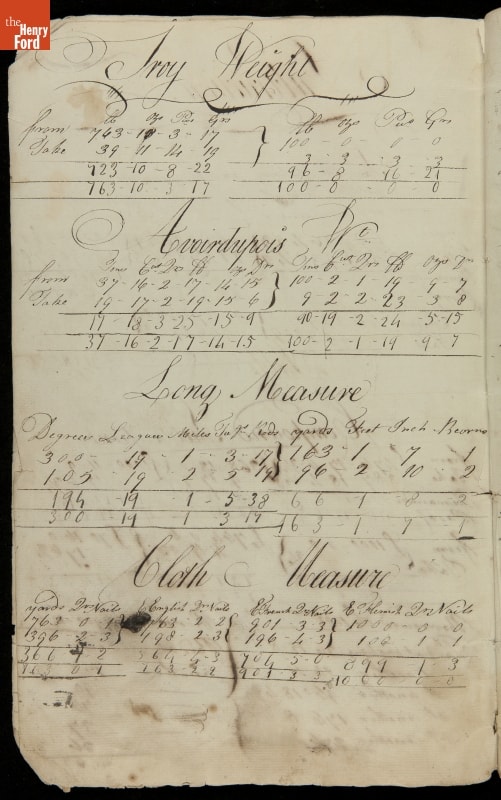 the
Henry
Ford
Troy Weight
lb oz Pw Grs lb oz Pw Grs
from 763 - 10 - 3 - 17 100 - 0 0 0
Take 39 - 11 - 14 - 19 3 - 3 - 3 - 3
723 - 10 - 8 - 22 96 - 8 - 16 - 21
763 - 10 - 3 - 17 100 - 0 - 0 - 0
Avoirdupois Wt
from 37 - 16 - 2 - 17 - 14 - 15 100 - 2 - 1 - 19 - 9 - 7
Take 19 - 17 - 2 - 19 - 15 6 9 2 2 23 3 8
17 - 18 - 3 - 25 - 15 - 9 90 - 19 - 2 - 24 - 5 - 15
37 - 16 - 2 - 17 - 14 - 15 100 - 2 - 1 - 19 9 7
Long Measure
Degrees Leagues Miles Fur Rods yards Feet Inch Bcorns
300 - 19 - 1 - 3 - 17 163 - 1 7 1
105 19 2 5 19 96 2 10 2
194 - 19 1 - 5 - 38 66 1 8 2
300 19 1 3 17 163 - 1 7 1
Cloth Measure
yards Qr Nails English Qr Nails E French Qr Nails E Flemish Qr Nails
763 0 1 763 2 2 901 3 3 1000 0 0
1396 2 3 198 2 3 196 - 4 3 100 1 1
366 1 2 564 4 3 704 5 0 899 1 3
763 0 1 763 2 2 901 3 3 1000 0 0